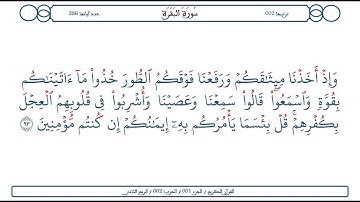 ترتيبها 002 سورة البقرة عدد آياتها 286
وَإِذْ أَخَذْنَا مِيثَٰقَكُمْ وَرَفَعْنَا فَوْقَكُمُ ٱلطُّورَ خُذُوا۟ مَآ ءَاتَيْنَٰكُم
بِقُوَّةٍ وَٱسْمَعُوا۟ ۖ قَالُوا۟ سَمِعْنَا وَعَصَيْنَا وَأُشْرِبُوا۟ فِى قُلُوبِهِمُ ٱلْعِجْلَ
بِكُفْرِهِمْ ۚ قُلْ بِئْسَمَا يَأْمُرُكُم بِهِۦٓ إِيمَٰنُكُمْ إِن كُنتُم مُّؤْمِنِينَ ٩٣
القرآن الكريم / الجزء 001 / الحزب 002 / الربع الثاني